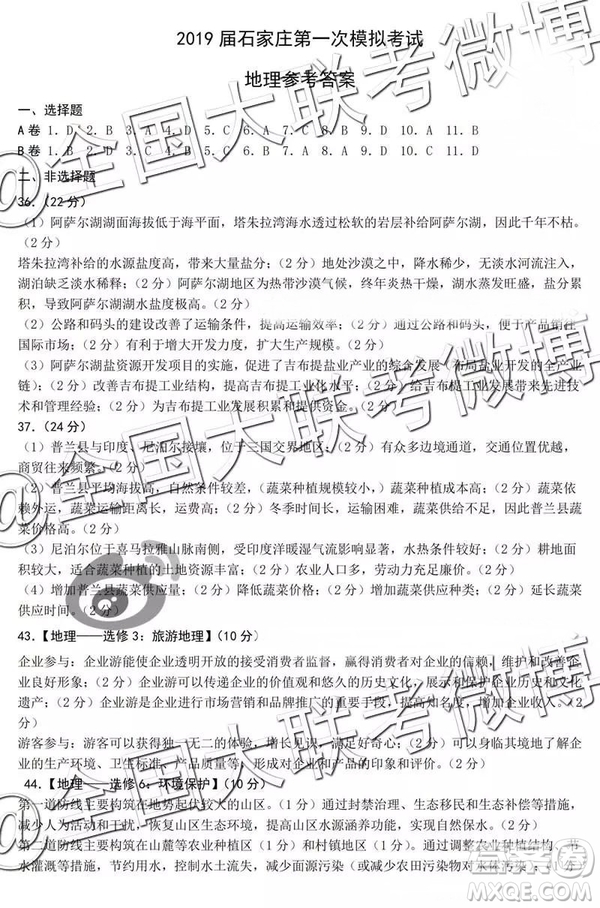 2019 届石家庄第一次模拟考试
地理参考答案
一、选择题
A 卷 1. D 2. B 3. A 4. D 5. C 6. A 7. C 8. B 9. D 10. A 11. B
B 卷 1. B 2. D 3. C 4. B 5. C 6. B 7. A 8. D 9. B 10. C 11. D
二、非选择题
36.（22 分）
（1）阿萨尔湖湖面海拔低于海平面，塔朱拉湾海水透过松软的岩层补给阿萨尔湖，因此千年不枯。
（2 分）
塔朱拉湾补给的水源盐度高，带来大量盐分；（2 分）地处沙漠之中，降水稀少，无淡水河流注入，
湖泊缺乏淡水稀释；（2 分）阿萨尔湖地区为热带沙漠气候，终年炎热干燥，湖水蒸发旺盛，盐分累
积，导致阿萨尔湖湖水盐度极高。（2 分）
（2）公路和码头的建设改善了运输条件，提高了运输效率；（2 分）通过公路和码头，便于产品销往
国际市场；（2 分）有利于增大开发力度，扩大生产规模。（2 分）
（3）阿萨尔湖盐资源开发项目的实施，促进了吉布提盐业产业的综合发展（布局盐业开发的全产业
链）；（2 分）改善吉布提工业结构，提高工业化水平；（2 分）给吉布提工业发展带来先进技术
和管理经验；（2 分）为吉布提经济发展积累和提供资金。（2 分）
37.（24 分）
（1）普兰县与印度、尼泊尔接壤，位于三国交界地区；（2 分）有众多边境通道，交通位置优越，
商贸往来频繁。（2 分）
（2）普兰县平均海拔高，自然条件较差，（蔬菜种植规模较小，）蔬菜种植成本高；（2 分）蔬菜依
靠外运，蔬菜运输距离远，运费高；（2 分）冬季时间长，且严寒，蔬菜供给不足，因此普兰县蔬
菜价格高。（2 分）
（3）尼泊尔位于喜马拉雅山脉南侧，受印度洋暖湿气流影响显著，水热条件较好；（2 分）耕地面
积较大，适合蔬菜种植的土地资源丰富；（2 分）农业人口多，劳动力充足廉价。（2 分）
（4）增加普兰县蔬菜供应量；（2 分）降低蔬菜价格；（2 分）增加蔬菜种类；（2 分）延长蔬菜
供应时间。（2 分）
43．【地理——选修 3：旅游地理】（10 分）
企业参与：企业游能使企业透明开放的接受消费者监督，赢得消费者对企业的信赖，维护和提升企
业良好形象；（2 分）企业游可以传递企业的价值观和悠久的历史文化，展示和保护工业历史和文化
遗产；（2 分）企业游是企业进行市场营销和品牌推广的重要手段，能够直接增加企业收入。（2
分）
游客参与：游客可以获得独一无二的体验，增长见识，满足好奇心；（2 分）能更真实的了解企业
的生产环境、卫生标准、产品质量等，是对企业和产品的印象和忠诚度。（2 分）
44．【地理——选修 6：环境保护】（10 分）
第一道防线主要构筑在地势起伏较大的山区。（1 分）通过封禁治理、生态移民和生态补偿等措施，
减少人为活动和干扰，保护和恢复生态环境，提高山区水源涵养功能，实现水土保持。（2 分）
第二道防线主要构筑在山麓等农业种植区（1 分）和村镇地区（1 分）。通过调整农业种植结构、节
水灌溉等措施，控制水土流失，减少面源污染（或减少农田污染物对
@全国大联考微博